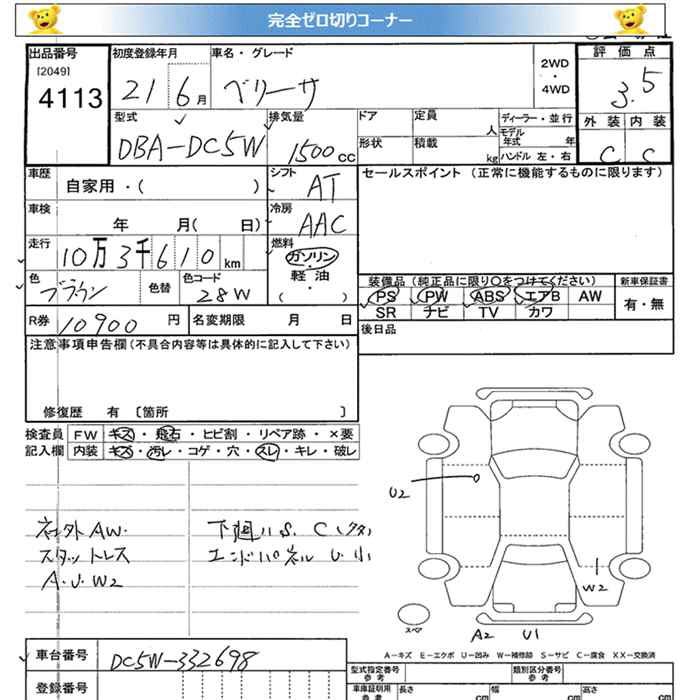 完全ゼロ切りコーナー
出品番号
[2049]
4113
初度登録年月
21 6月
車名・グレード
ベリーサ
2WD
・
4WD
評価点
3.5
外装 内装
C C
型式
DBA-DC5W
排気量
1500cc
ドア
定員
人
形状
積載
kg
ディーラー・並行
モデル年式 年
ハンドル 左・右
車歴
自家用・( )
シフト
AT
車検
年 月( 日)
冷房
AAC
走行
10万3千610km
燃料
ガソリン
・
軽油
( )
色
ブラウン
色替
色コード
28W
セールスポイント (正常に機能するものに限ります)
装備品 (純正品に限り○をつけてください)
PS PW ABS エアB AW
SR ナビ TV カワ
新車保証書
有・無
R券 10900円
名変期限 月 日
後日品
注意事項申告欄(不具合内容等は具体的に記入して下さい)
修復歴 有 〔箇所 〕
検査員
記入欄
FW キズ・飛石・ヒビ割・リペア跡・×要
内装 キズ・汚レ・コゲ・穴・スレ・キレ・破レ
社外AW.
スタットレス
A.U.W2
下廻りS. C(クサ)
エンドパネル U.小
U2
W2
スペア
A2 U1
A-キズ E-エクボ U-凹み W-補修跡 S-サビ C-腐食 XX-交換済
車台番号
DC5W-332698
登録番号
型式指定番号
参考
類別区分番号
参考
車庫証明用
参考
長さ cm
幅 cm
高さ cm